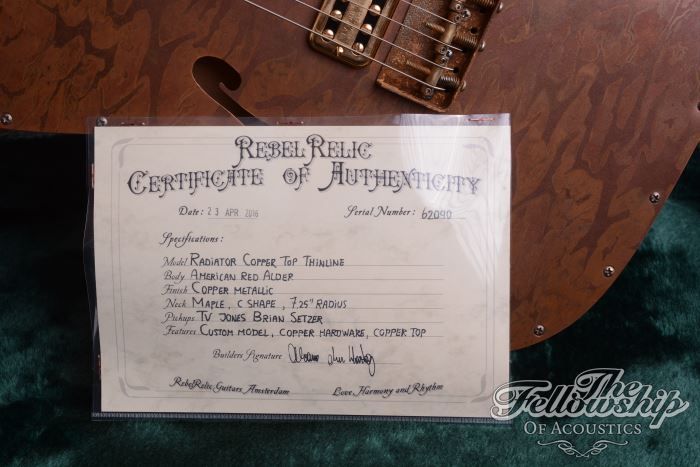 RebelRelic
Certificate of Authenticity
Date: 23 APR 2016 Serial Number: 62090
Specifications:
Model RADIATOR COPPER TOP THINLINE
Body AMERICAN RED ALDER
Finish COPPER METALLIC
Neck MAPLE, C SHAPE, 7.25" RADIUS
Pickups TV JONES BRIAN SETZER
Features CUSTOM MODEL, COPPER HARDWARE, COPPER TOP
Builders Signature
RebelRelic Guitars, Amsterdam Love, Harmony and Rhythm
The
Fellowship
Of Acoustics